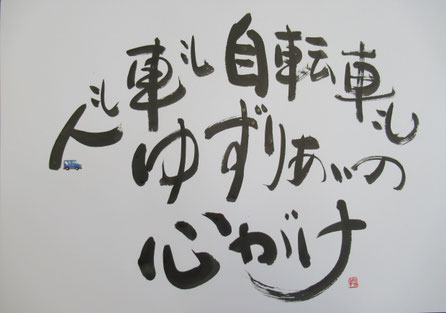 人も車も自転車も
ゆずりあいの
心がけ